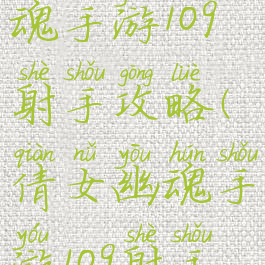 魂手游109
shè shǒu gōng lüè
射手攻略(
qiàn nǚ yōu hún shǒu
倩女幽魂手
yóu shè shǒu
游109射手